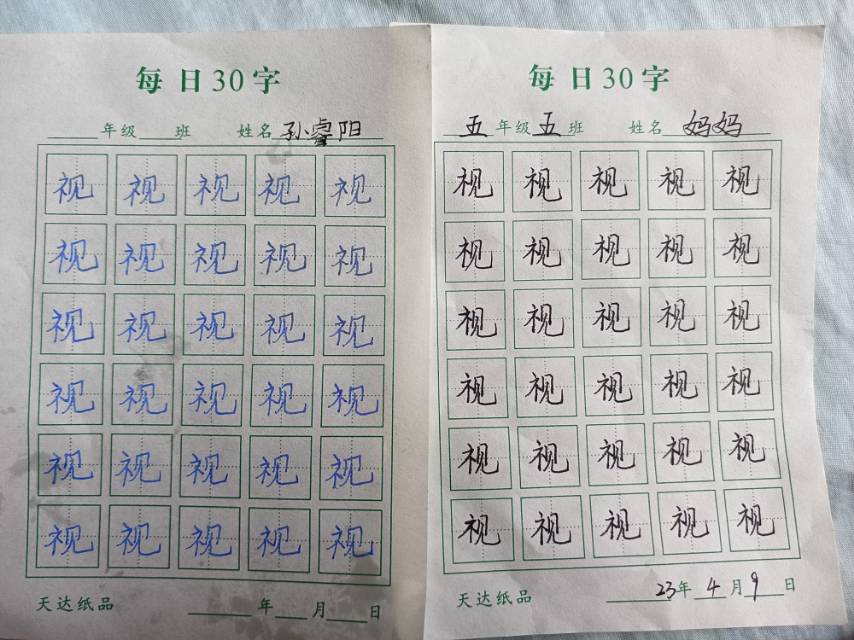 每日30字
年级 班 姓名 孙睿阳
视 视 视 视 视
视 视 视 视 视
视 视 视 视 视
视 视 视 视 视
视 视 视 视 视
视 视 视 视 视
天达纸品 年 月 日
每日30字
五年级五班 姓名 妈妈
视 视 视 视 视
视 视 视 视 视
视 视 视 视 视
视 视 视 视 视
视 视 视 视 视
视 视 视 视 视
天达纸品 23年4月9日